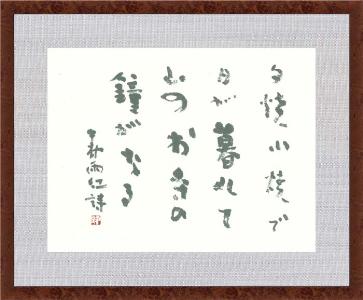 夕焼小焼で
日が暮れて
山のお寺の
鐘がなる
中村雨紅詩